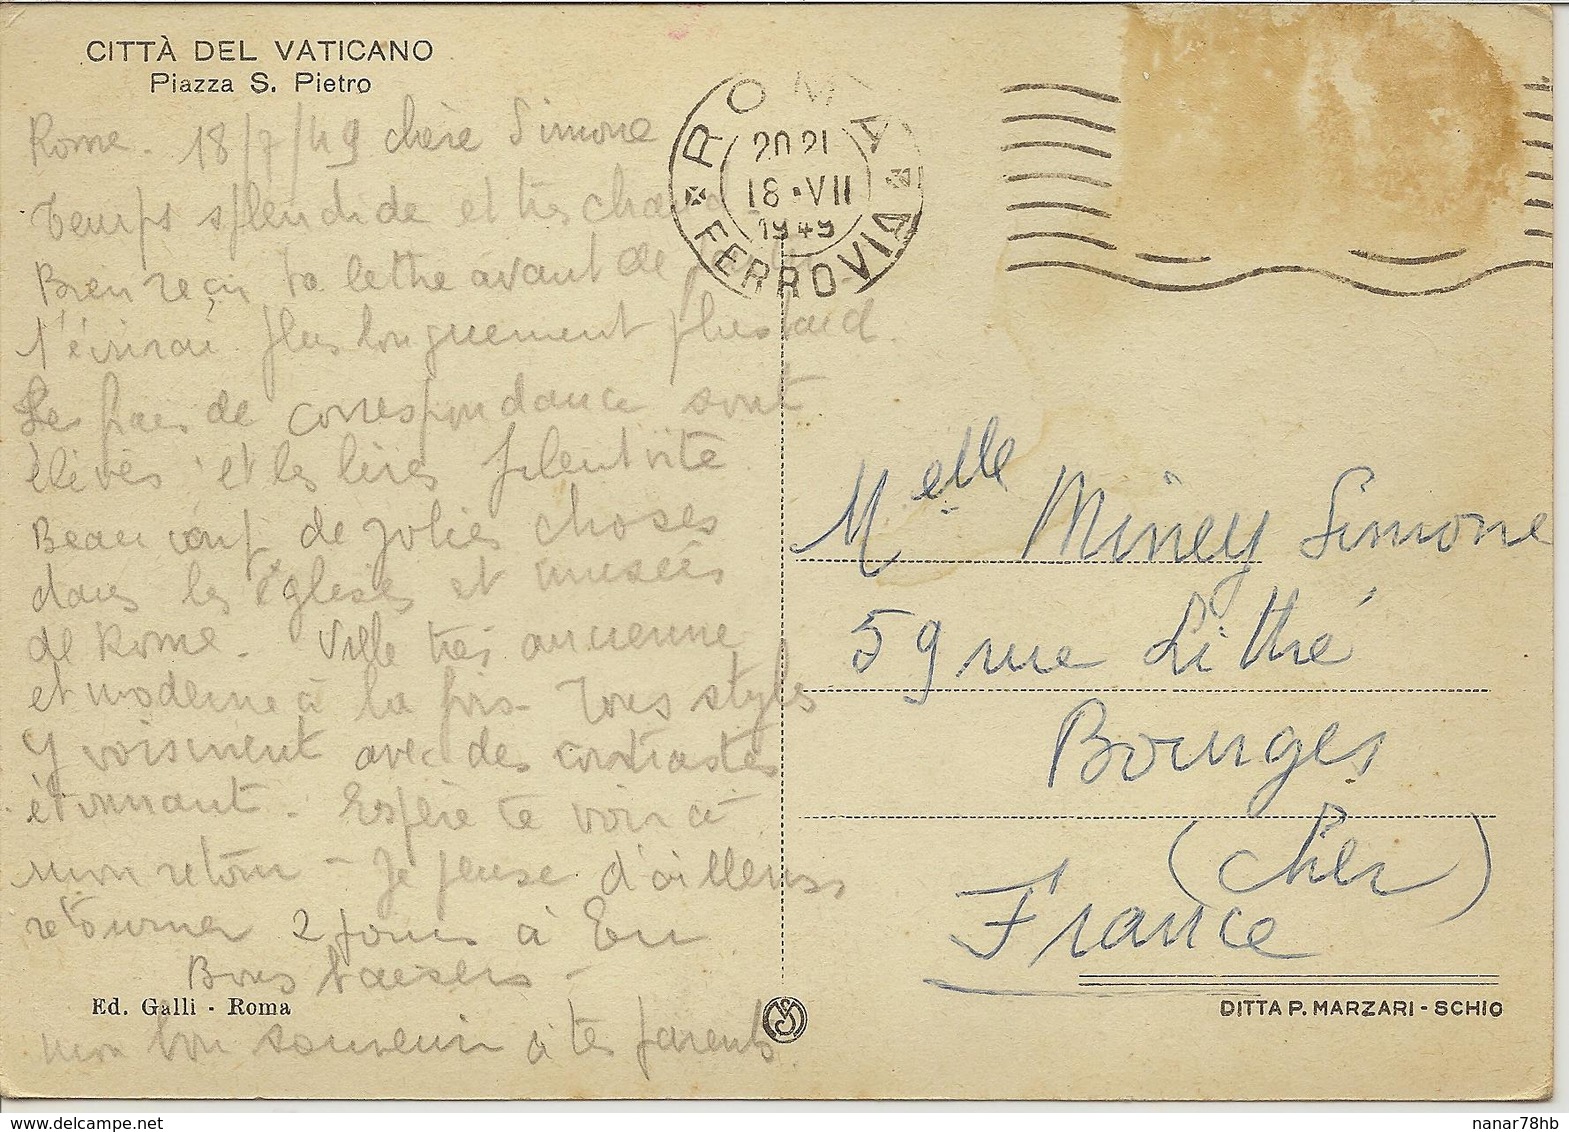 CITTÀ DEL VATICANO
Piazza S. Pietro
Rome. 18/7/49 chère Simone
Temps splendide et très chaud
Bien reçu ta lettre avant de partir
t'écrirai plus longuement plus tard.
Les frais de correspondance sont
élevés et les lires filent vite
Beaucoup de jolies choses
dans les églises et musées
de Rome. Ville très ancienne
et moderne à la fois. Tous styles
y voisinent avec des contrastes
étonnant. Espère te voir à
mon retour - Je pense d'ailleurs
retourner 2 jours à Eu
Bons baisers -
mon bon souvenir à tes parents
Ed. Galli - Roma
ROMA
20.21
18·VII
1949
FERROVIA
Melle Miney Simone
59 rue Littré
Bourges
(Cher)
France
DITTA P. MARZARI - SCHIO
nanar78hb